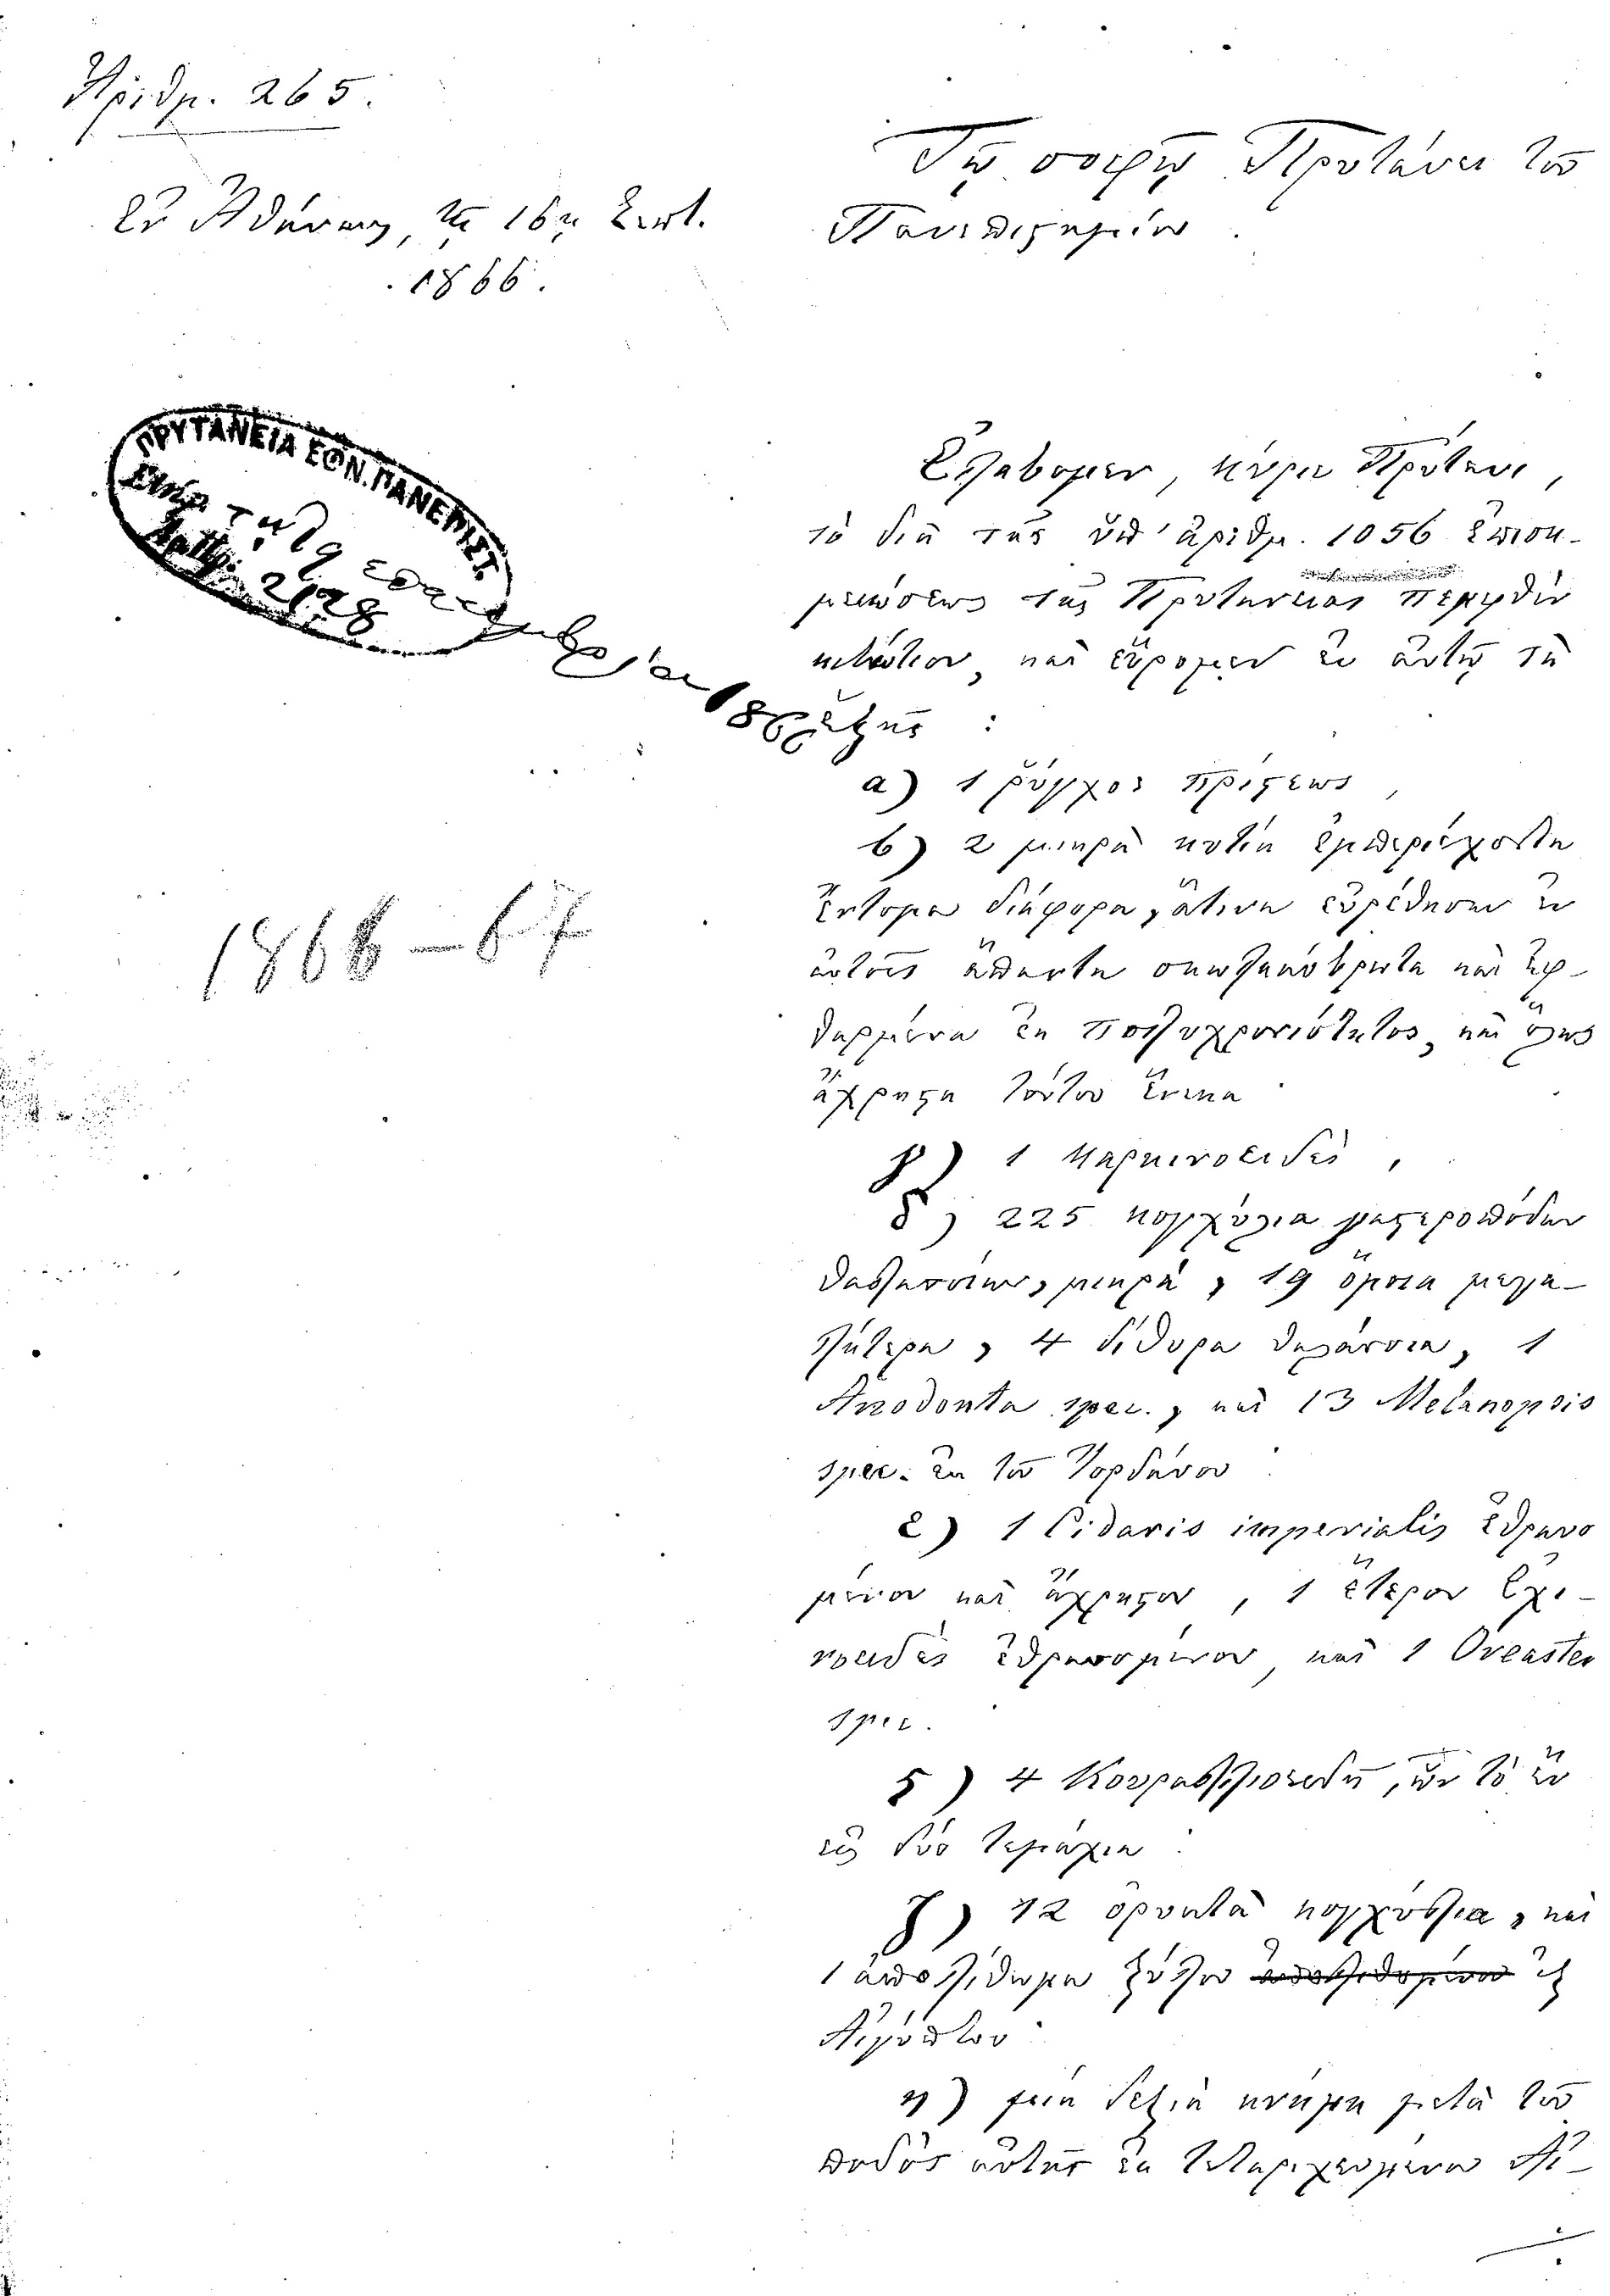 Ἀριθμ. 265.
Ἐν Ἀθήναις, τῇ 16ῃ Σεπτ.
1866.
Τῷ σοφῷ Πρυτάνει τοῦ
Πανεπιστημίου.
ΠΡΥΤΑΝΕΙΑ ΕΘΝ. ΠΑΝΕΠΙΣΤ.
2128
Ἐλάβομεν, κύριε Πρύτανι,
τὸ διὰ τῆς ὑπ' ἀριθμ. 1056 ἐπιση-
μειώσεως τῆς Πρυτανείας πεμφθὲν
κιβώτιον, καὶ εὕρομεν ἐν αὐτῷ τὰ
ἑξῆς :
α) 1 ῥύγχος πρίστεως,
β) 2 μικρὰ κυτία ἐμπεριέχοντα
ἔντομα διάφορα, ἅτινα εὑρέθησαν ἐν
αὐτοῖς ἅπαντα σκωληκόβρωτα καὶ ἐφ-
θαρμένα ἐκ πολυχρονιότητος, καὶ ὅλως
ἄχρηστα τούτου ἕνεκα
γ) 1 καρκινοειδὲς,
δ) 225 κογχύλια γαστεροπόδων
θαλασσίων, μικρὰ, 19 ὅμοια μεγα-
λήτερα, 4 δίθυρα θαλάσσια, 1
Anodonta spec., καὶ 13 Melanopsis
spec. ἐκ τοῦ Ἰορδάνου
ε) 1 Cidaris imperialis ἐθραυσ
μένον καὶ ἄχρηστον, 1 ἕτερον ἐχι-
νοειδὲς ἐθραυσμένον, καὶ 1 Oreaster
spec.
ς) 4 Κοραλλιοειδῆ, ὧν τὸ ἓν
εἰς δύο τεμάχια
ζ) 12 ὀρυκτὰ κογχύλια, καὶ
1 ἀπολίθωμα ξύλου ἐξ
Αἰγύπτου
η) μία δεξιὰ κνήμη μετὰ τοῦ
ποδὸς αὐτῆς ἐκ τεταριχευμένου Αἰ-
1866-67